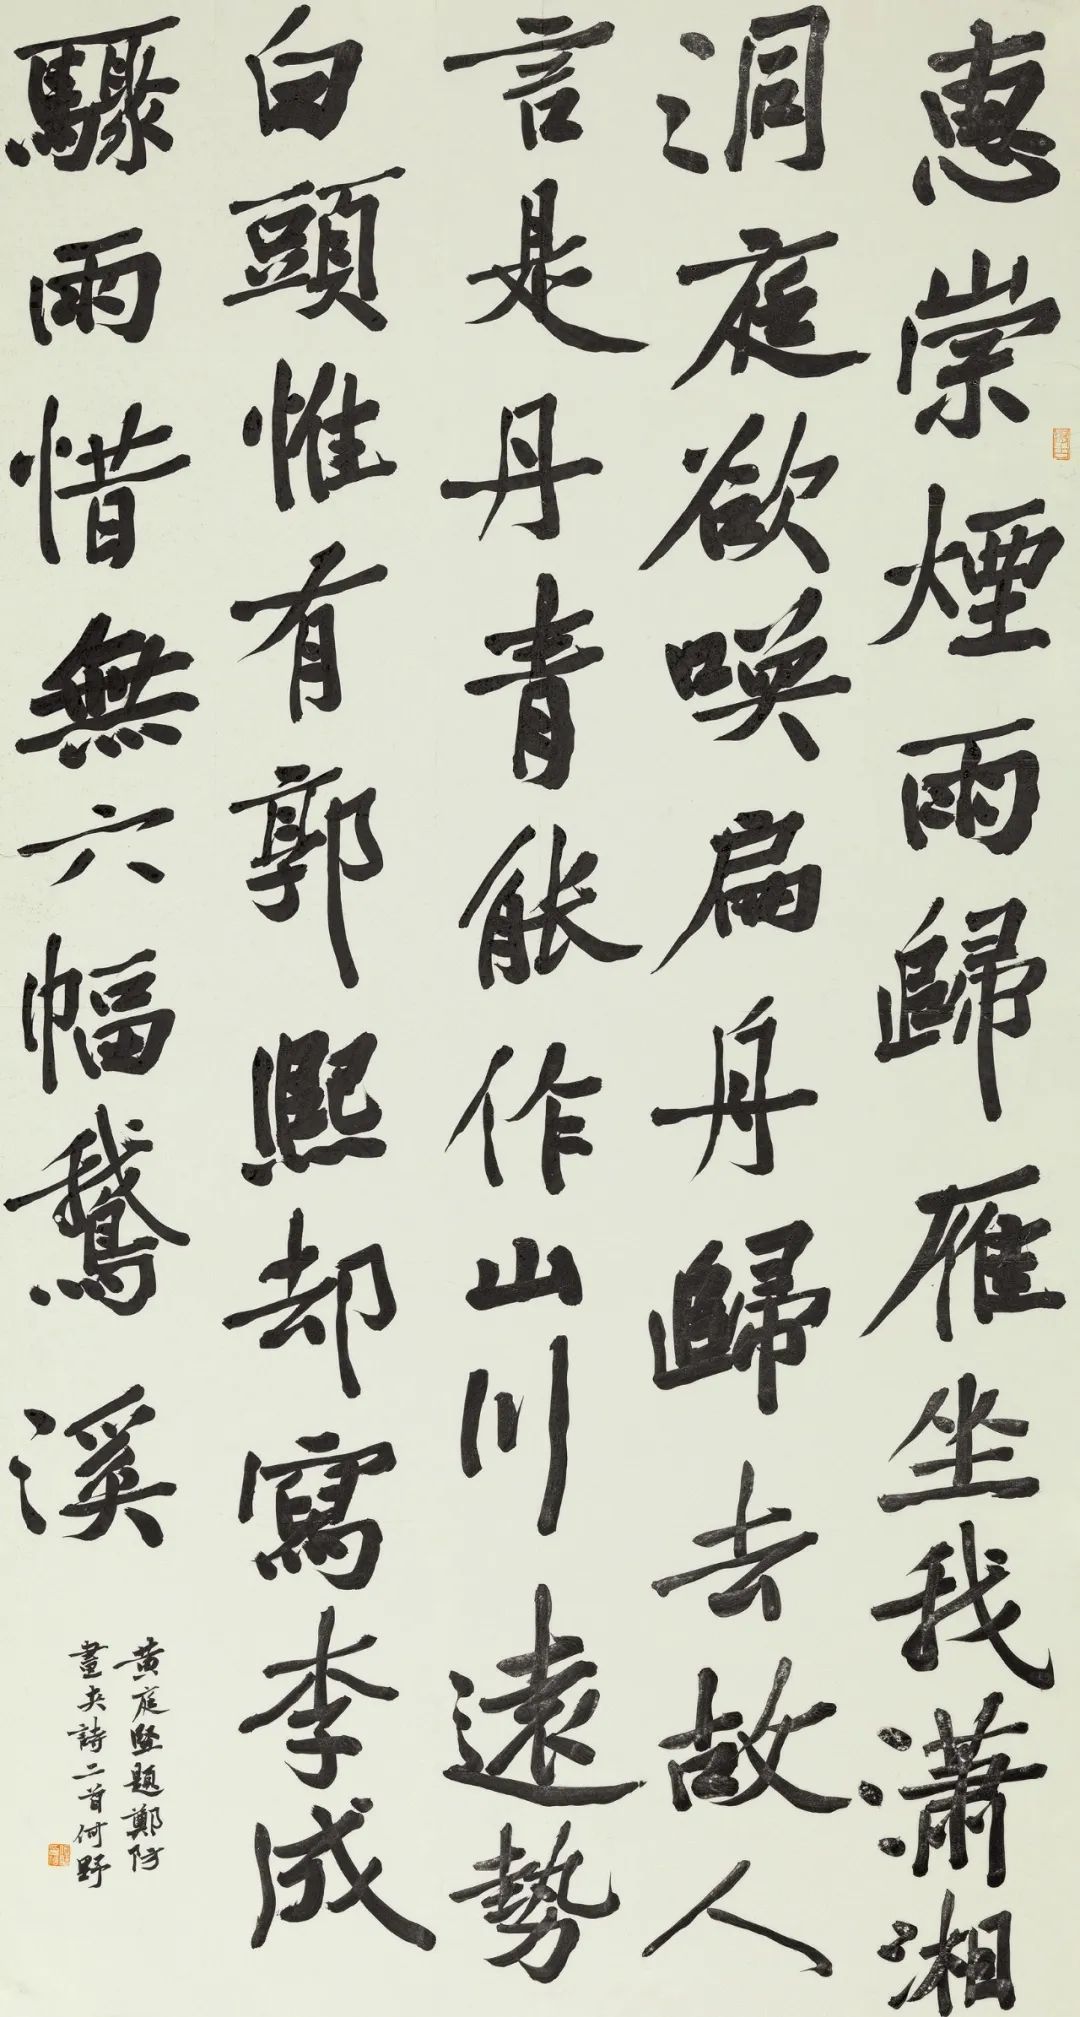 惠崇煙雨歸雁坐我瀟湘
洞庭欲喚扁舟歸去故人
言是丹青能作山川遠勢
白頭惟有郭熙却寫李成
驟雨惜無六幅鵝溪
黄庭堅題鄭防
畫夾詩二首何野